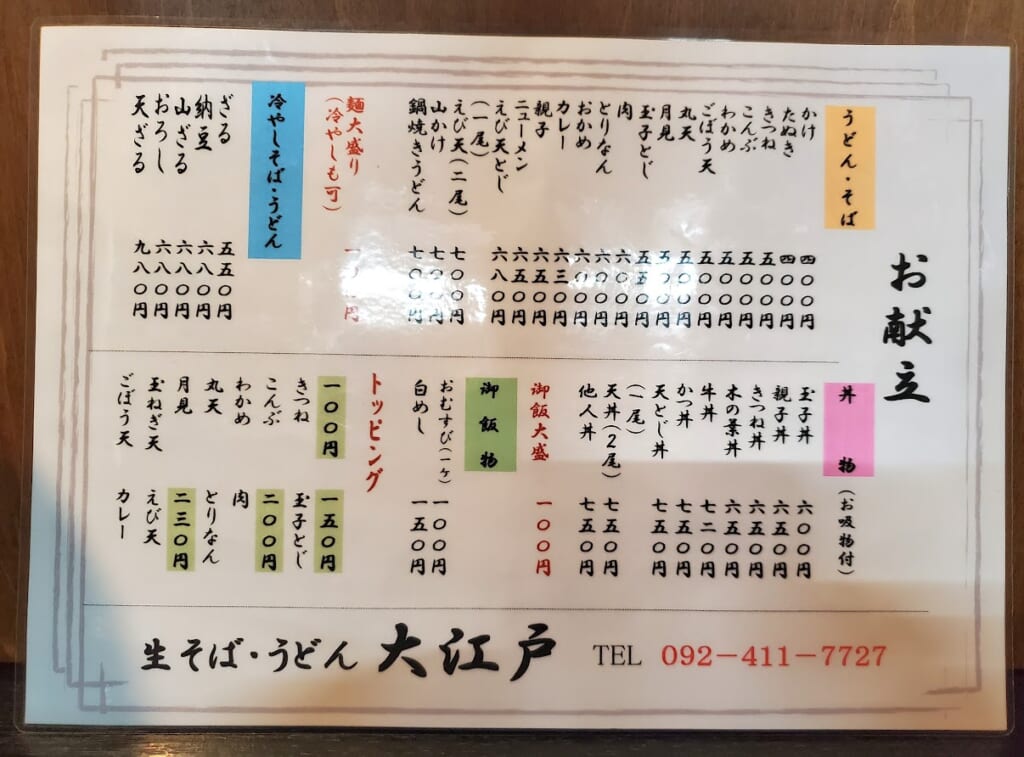 お献立
うどん・そば
かけ 四〇〇円
たぬき 四〇〇円
きつね 五〇〇円
こんぶ 五〇〇円
わかめ 五〇〇円
ごぼう天 五〇〇円
丸天 五〇〇円
月見
玉子とじ 五五〇円
肉 六〇〇円
とりなん 六〇〇円
おかめ 六〇〇円
カレー 六三〇円
親子 六五〇円
ニューメン 六五〇円
えび天とじ 六八〇円
(一尾)
えび天(二尾) 七〇〇円
山かけ 七〇〇円
鍋焼きうどん
麺大盛り
(冷やしも可)
冷やしそば・うどん
ざる 五五〇円
納豆 六八〇円
山ざる 六八〇円
おろし 六八〇円
天ざる 九八〇円
丼物(お吸物付)
玉子丼 六〇〇円
親子丼 六五〇円
きつね丼 六五〇円
木の葉丼 六五〇円
牛丼 七二〇円
かつ丼 七五〇円
天とじ丼 七五〇円
(一尾)
天丼(2尾) 七五〇円
他人丼 七五〇円
御飯大盛 一〇〇円
御飯物
おむすび(一ケ) 一〇〇円
白めし 一五〇円
トッピング
一〇〇円
きつね
こんぶ
わかめ
丸天
月見
玉ねぎ天
ごぼう天
一五〇円
玉子とじ
二〇〇円
肉
とりなん
二三〇円
えび天
カレー
生そば・うどん 大江戸 TEL 092-411-7727